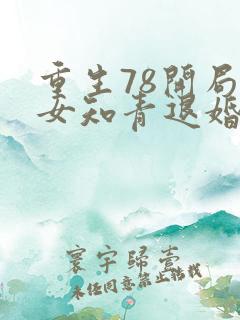 重生78開局
女知青退婚
寰宇歸壹
未任同意禁止轉載